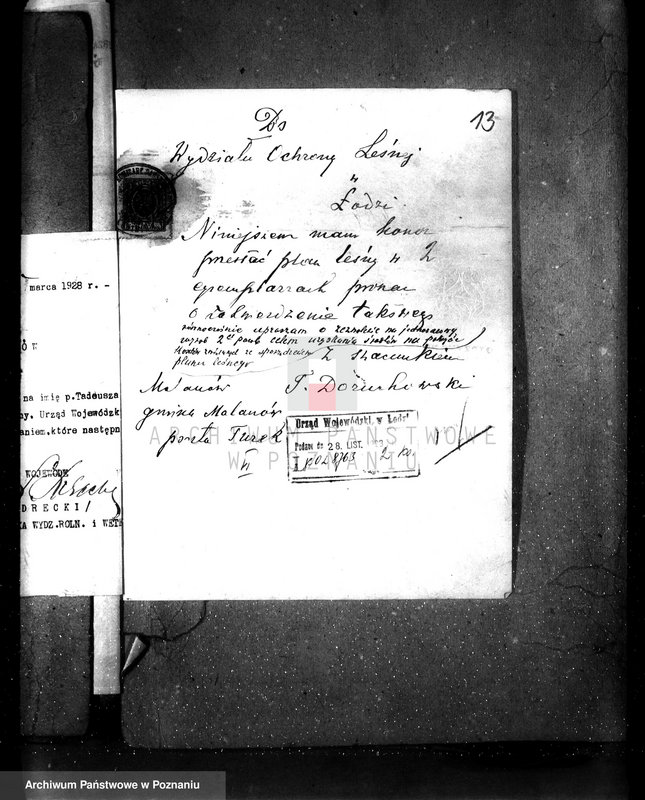 13
Do
Wydziału Ochrony Leśnej
w
Łodzi.
Niniejszem mam honor
przesłać plan leśny w 2
egzemplarzach prosząc
o zatwierdzenie takowego
równocześnie upraszam o zezwolenie na jednorazowy
wyrąb 2 ch celem uzyskania środków na pokrycie
kosztów związanych ze sporządzeniem
planu leśnego
Z szacunkiem
Malanów T. Doruchowski
gmina Malanów
poczta Turek
Urząd Wojewódzki w Łodzi
Podano do 28. LIST.
marca 1928 r. -
na imię p.Tadeusza
ny. Urząd Wojewódzk
aniem.które następn
WOJEWODĘ
DRECKI/
KA WYDZ.ROLN. i WET
ARCHIWUM PAŃSTWOWE
W POZNANIU
Archiwum Państwowe w Poznaniu